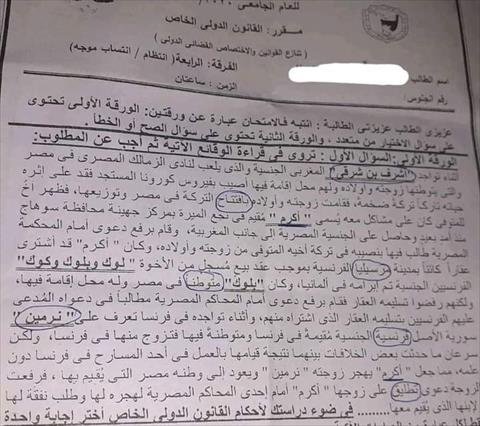 للعام الجامعى
مقرر: القانون الدولى الخاص
( تنازع القوانين والاختصاص القضائى الدولى )
الفرقة: الرابعة ( انتظام / انتساب موجه )
الزمن: ساعتان
اسم الطالب
رقم الجلوس:
عزيزى الطالب عزيزتى الطالبة: انتبه فالامتحان عبارة عن ورقتين: الورقة الأولى تحتوى
على سؤال الاختيار من متعدد ، والورقة الثانية تحتوى على سؤال الصح أو الخطأ.
الورقة الأولى: السؤال الأول: تروى فى قراءة الوقائع الآتية ثم أجب عن المطلوب:
أثناء تواجد "أشرف بن شرقى" المغربى الجنسية والذى يلعب لنادى الزمالك المصرى فى مصر
والتى يتوطنها زوجته وأولاده ولهم محل إقامة فيها أصيب بفيروس كورونا المستجد فقد على إثره
حياته تركاً تركة ضخمة، فقامت زوجته وأولاده بافتتاح التركة فى مصر وتوزيعها، فظهر أخ
للمتوفى كان على مشاكل معه يُسمى "أكرم" مُقيم فى نجع الميرة بمركز جهينة محافظة سوهاج
منذ أمد بعيد وحاصل على الجنسية المصرية إلى جانب المغربية، وقام برفع دعوى أمام المحكمة
المصرية طالب فيها بنصيبه فى تركة أخيه المتوفى من زوجته وأولاده، وكان "أكرم" قد اشترى
عقاراً كائناً بمدينة مرسيليا الفرنسية بموجب عقد بيع مسجل من الأخوة " لوك وبلوك وكوك"
الفرنسيين الجنسية تم إبرامه فى ألمانيا، وكان "بلوك" متوطناً فى مصر وله محل إقامة فيها،
ولكنهم رفضوا تسليمه العقار فقام برفع دعوى أمام المحاكم المصرية مطالباً فى دعواه المُدعى
عليهم الفرنسيين بتسليمه العقار الذى اشتراه منهم، وأثناء تواجده فى فرنسا تعرف على " نرمين "
سورية الأصل فرنسية الجنسية مُقيمة فى فرنسا ومتوطنة فيها فتزوج منها فى فرنسا، ولكن
سرعان ما حدثت بعض الخلافات بينهما نتيجة قيامها بالعمل فى أحد المسارح فى فرنسا دون
علمه، مما جعل "أكرم" يهجر زوجته "نرمين" ويعود الى وطنه مصر التى يُقيم بها، فرفعت
الزوجة دعوى تطليق على زوجها "أكرم" أمام إحدى المحاكم المصرية لهجره لها وطلب نفقة لها
لابنها الذى يُقيم معها......... فى ضوء دراستك لأحكام القانون الدولى الخاص أختر إجابة واحدة